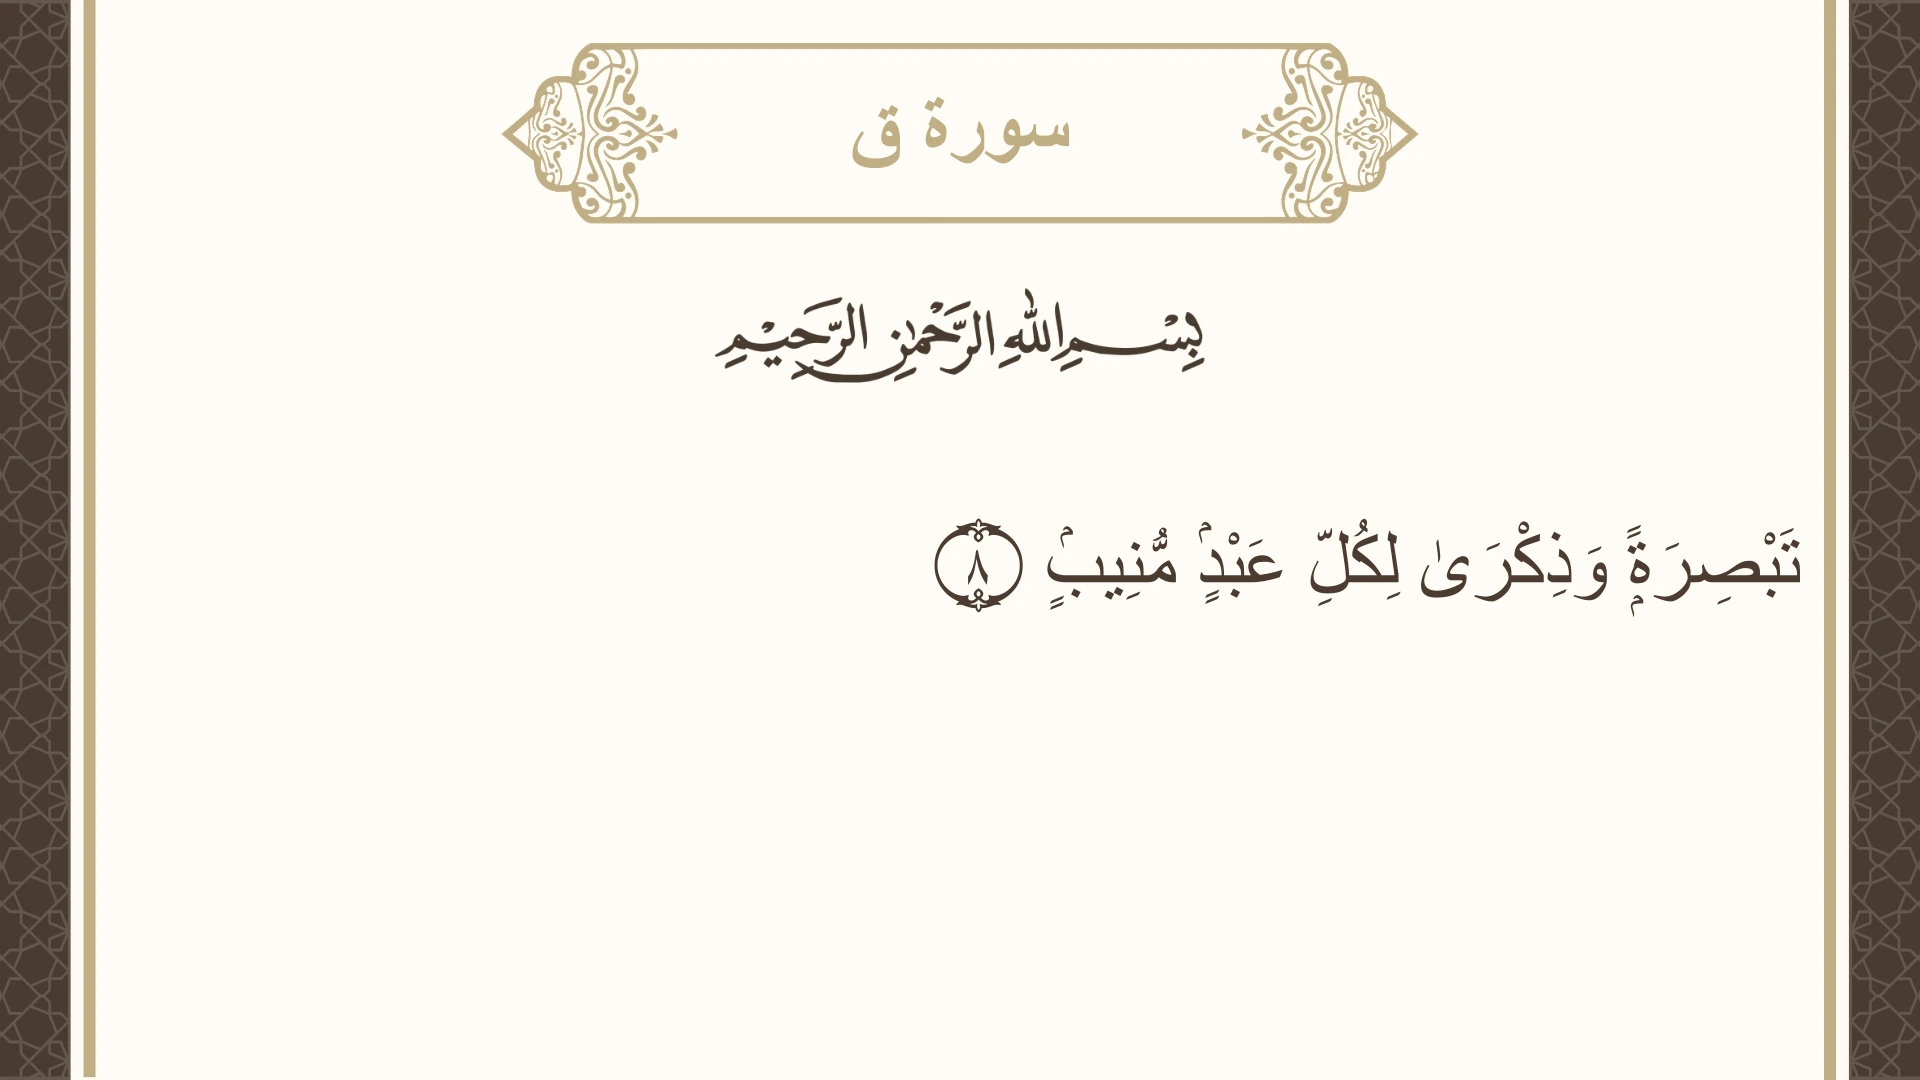 سورة ق
بِسْمِ اللهِ الرَّحْمٰنِ الرَّحِيْمِ
تَبْصِرَةًۭ وَذِكْرَىٰ لِكُلِّ عَبْدٍۢ مُّنِيبٍۢ ٨